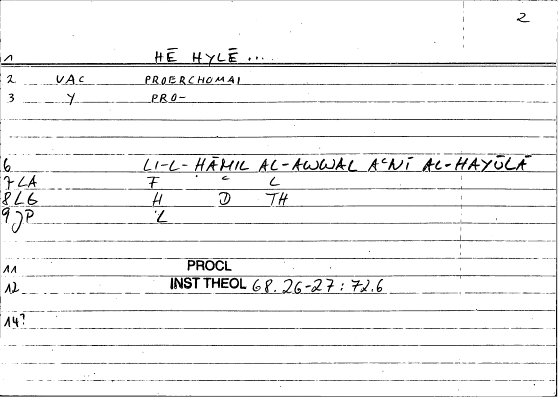 2
1 HĒ HYLĒ ...
2 VAC PROERCHOMAI
3 Y PRO-
6 LI-L-HĀMIL AL-AWWAL AᶜNĪ AL-HAYŪLĀ
7 LA F ᶜ L
8 LG H D TH
9 JP L
11 PROCL
12 INST THEOL 68.26-27 : 72.6
14?